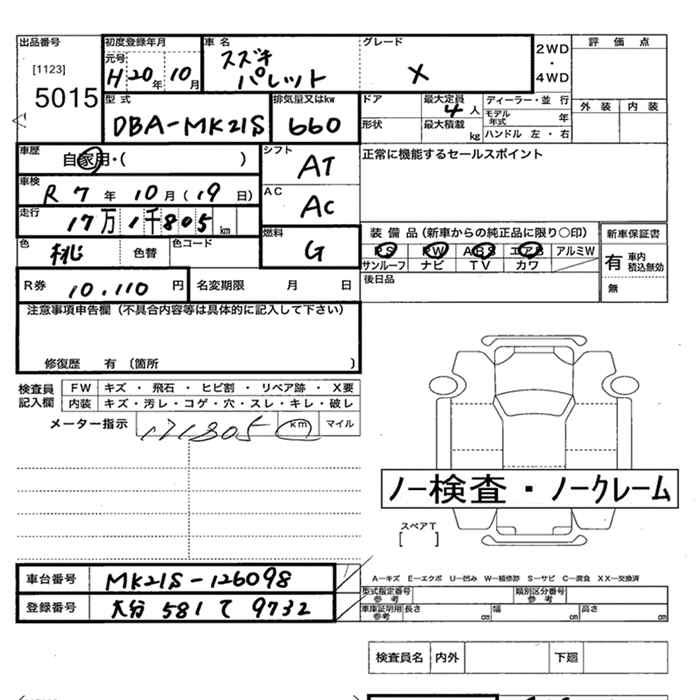 出品番号 初度登録年月 車名 グレード 2WD 評価点
[1123] 元号 スズキ
5015 H 20年 10月 パレット X ・ 4WD
型式 排気量又はkw ドア 最大定員 4人 ディーラー・並行 外装 内装
DBA-MK21S 660 形状 最大積載 kg モデル年式 年
ハンドル 左・右
車歴 自家用・( ) シフト AT 正常に機能するセールスポイント
車検 R 7年 10月(19日) AC AC
走行 17万1千805km 装備品(新車からの純正品に限り〇印) 新車保証書
色 桃 色替 色コード 燃料 G PS PW ABS エアB アルミW 有 車内積込無効
サンルーフ ナビ TV カワ
R券 10.110円 名変期限 月 日 後日品 無
注意事項申告欄(不具合内容等は具体的に記入して下さい)
修復歴 有(箇所 )
検査員記入欄 FW キズ・飛石・ヒビ割・リペア跡・X要
内装 キズ・汚レ・コゲ・穴・スレ・キレ・破レ
メーター指示 171805 km マイル
ノー検査・ノークレーム
スペアT
[ ]
車台番号 MK21S-126098 A-キズ E-エクボ U-凹み W-補修跡 S-サビ C-腐食 XX-交換済
型式指定番号参考 類別区分番号参考
登録番号 大分 581 て 9732 車庫証明用参考 長さ cm 幅 cm 高さ cm
検査員名 内外 下廻